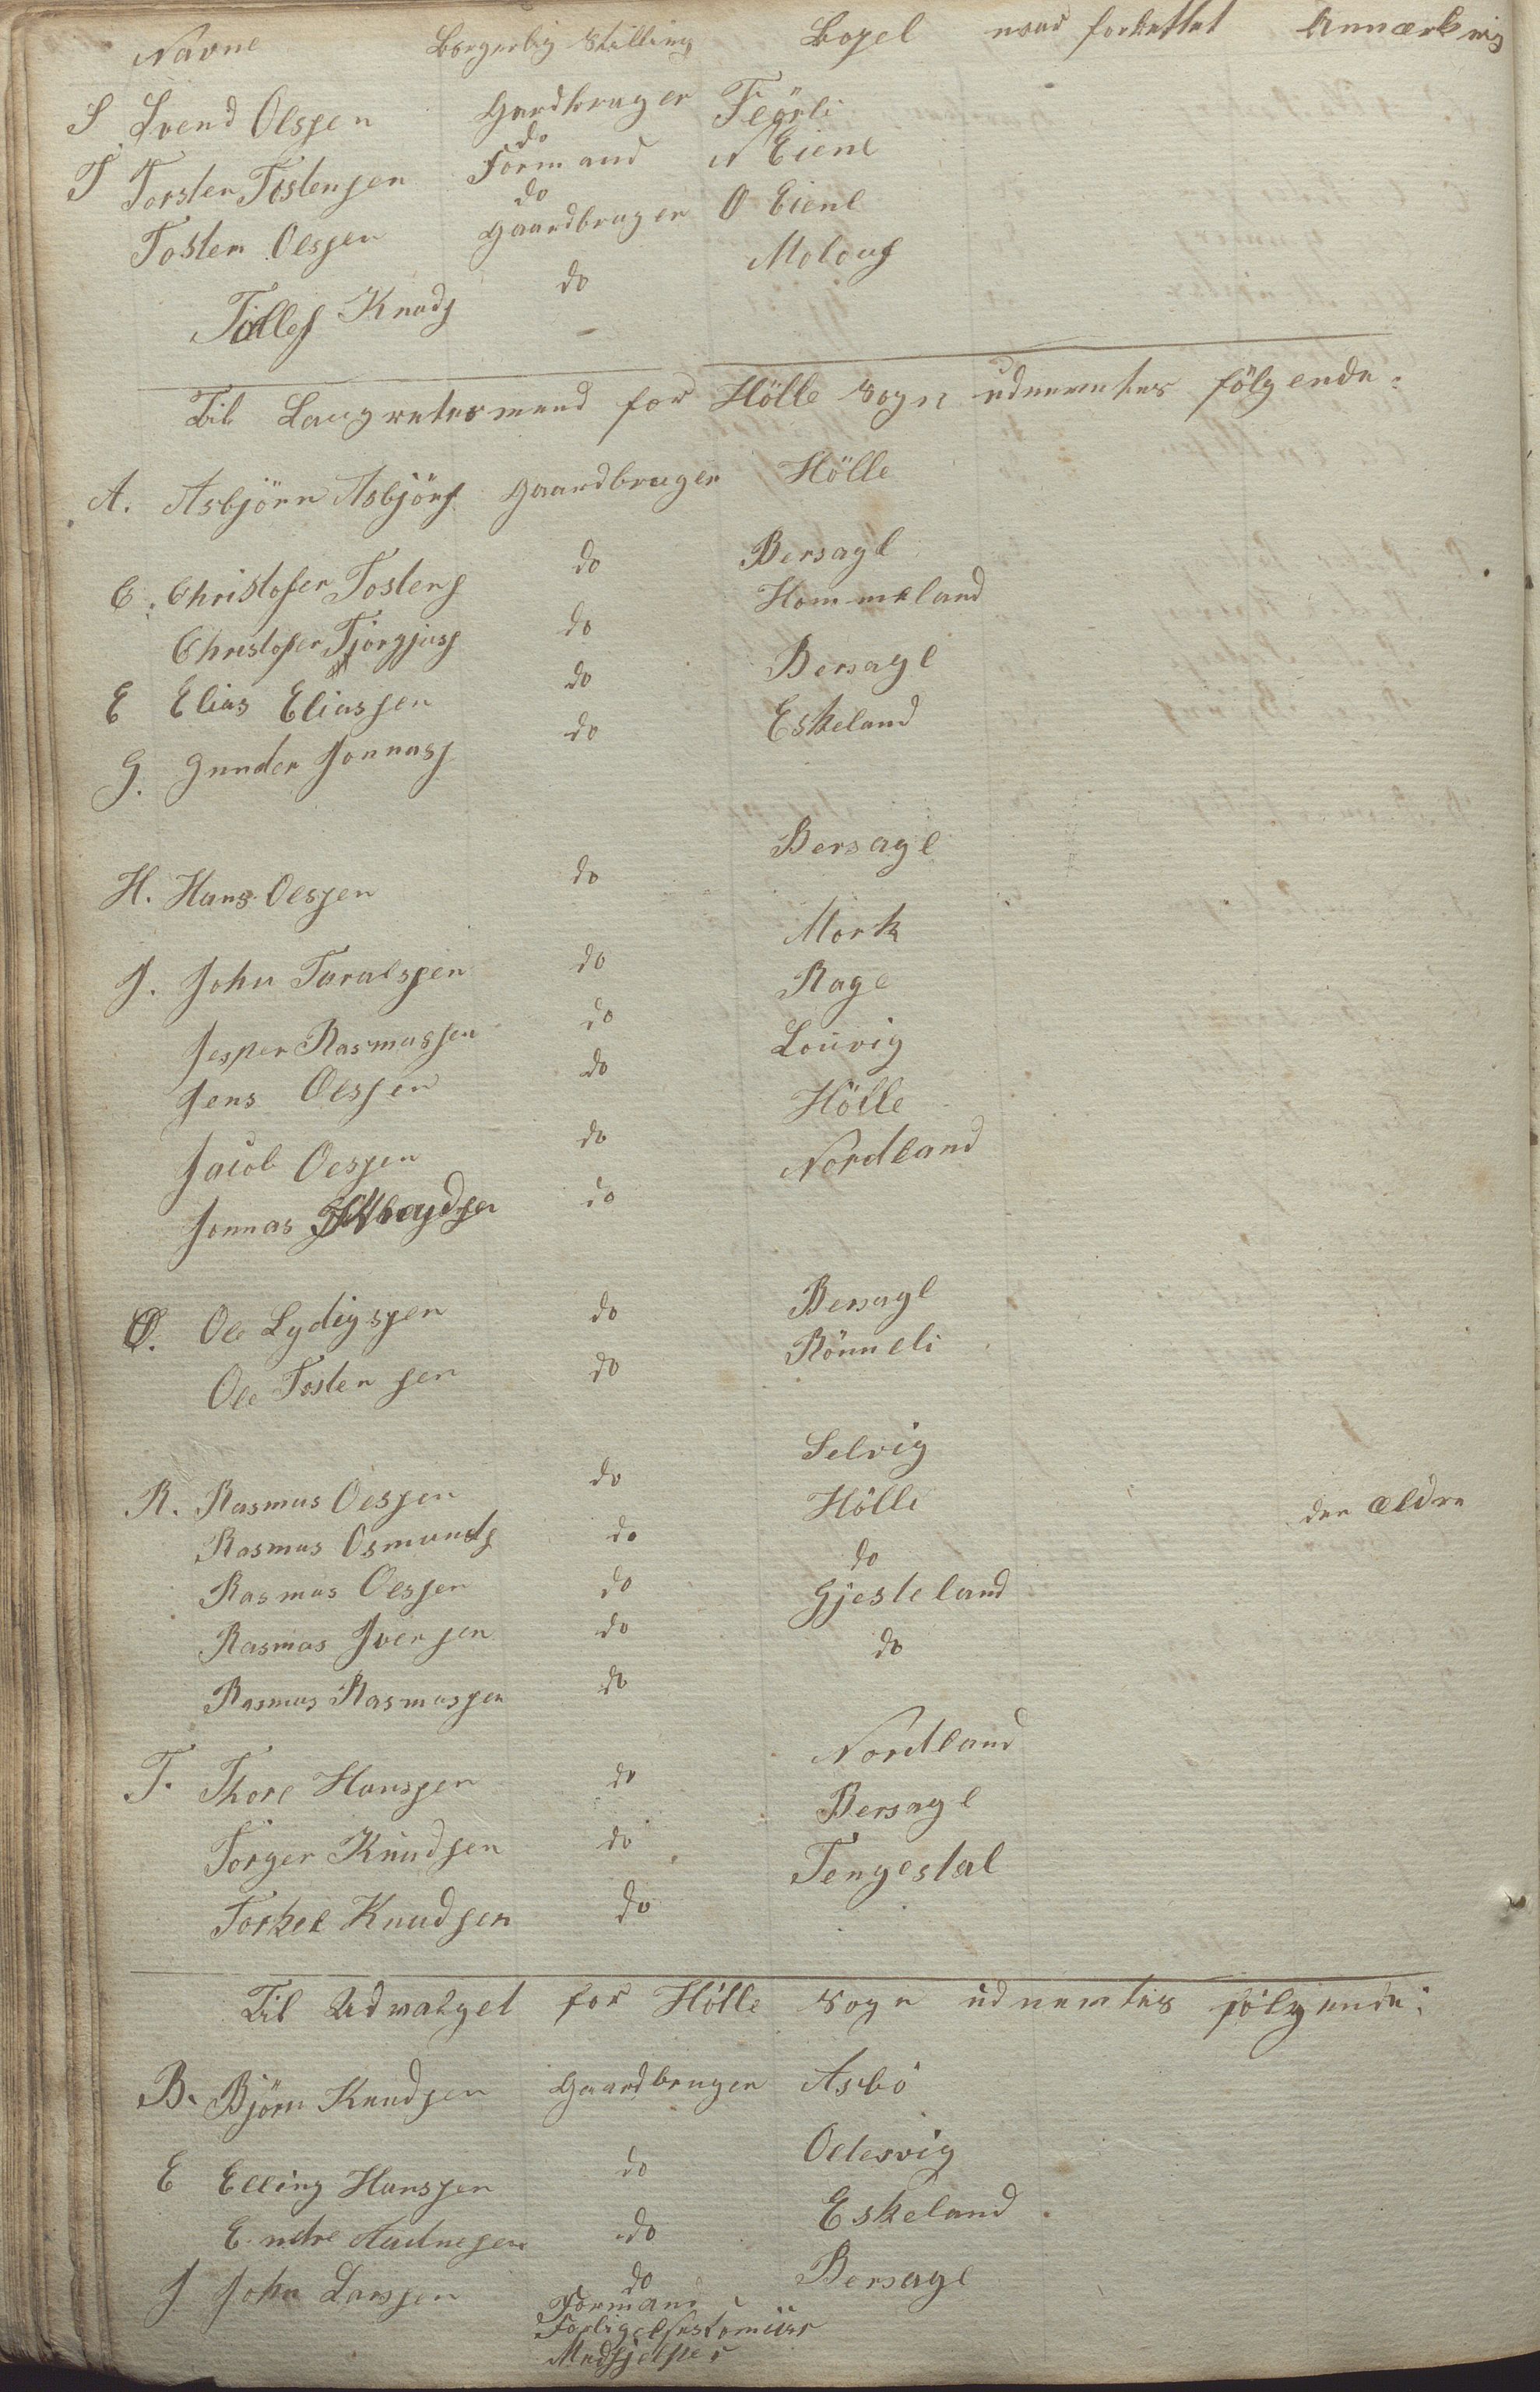 Navne Borgerlig Stilling Bopel naar forrettet Anmærkning
S Svend Olssen Gardbruger Flørli
do
T Torsten Tostensen Formand N Eiene
do
Tosten Olssen Gaardbruger O Eiene
Tollefs Knuds do
Til Laugretesmend for Hölle Sogn udnevntes fölgende:
A. Asbjörn Asbjörs Gaardbruger Hölle
C. Christofer Tostens do Bersagl
Christofer Tjorgjus do Hommeland
E Elias Eliassen do Bersagl
G. Gunder Jonnass do Eskeland
H. Hans Olssen do Bersagl
J. John Taralssen do Mork
Jesper Rasmussen do Rage
Jens Olssen do Louvig
Jacob Olssen do Hölle
Jonnas do Nordland
O. Ole Lydigssen do Bersagl
Ole Tostensen do Rönneli
R. Rasmus Olssen do Selvig
Rasmus Osmunds do Hölle
Rasmus Olssen do do den Ældre
Rasmus Iversen do Gjesteland
Rasmus Rasmussen do do
T. Thore Hanssen do Nordland
Torger Knudsen do Bersagl
Torkel Knudsen do Tengesdal
Til Udvalget for Hölle Sogn udnevntes fölgende:
B. Björn Knudsen Gaardbruger Asbö
E Elling Hanssen do Oltesvig
Endre Aadnesen do Eskeland
J John Larssen do Bersagl
Formand
Forligelseskomiisr
Medhjelper